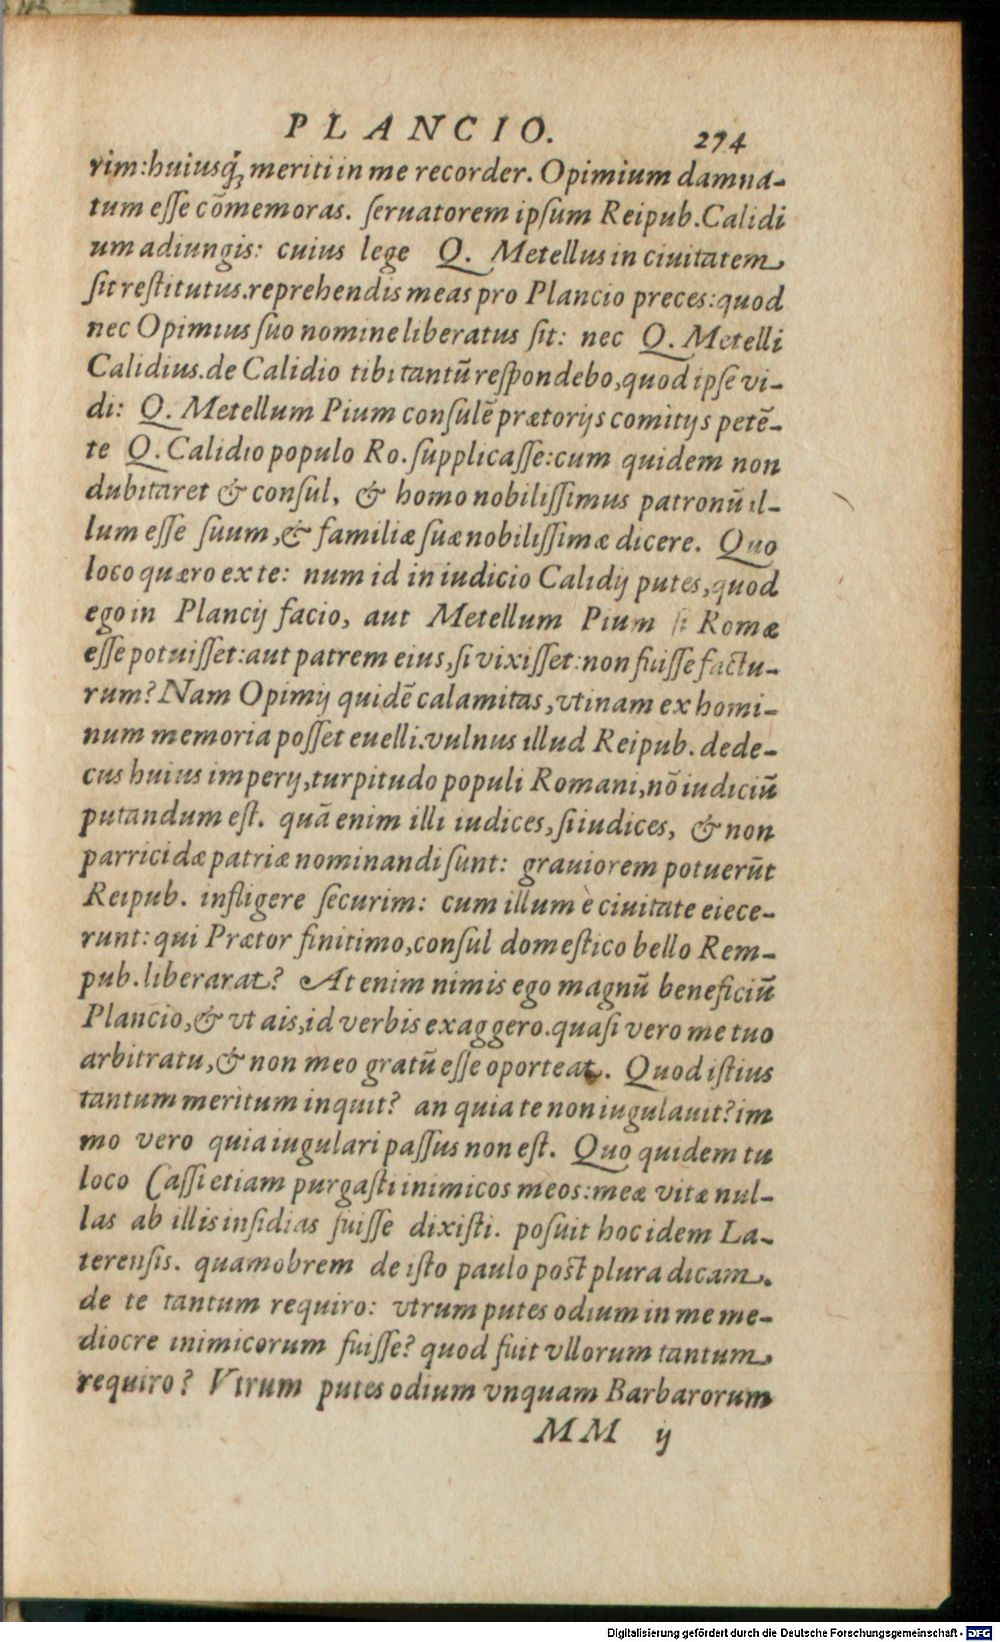 PLANCIO. 274
rim: huiusq́; meriti in me recorder. Opimium damna-
tum esse cõmemoras. seruatorem ipsum Reipub. Calidi
um adiungis: cuius lege Q. Metellus in ciuitatem
sit restitutus. reprehendis meas pro Plancio preces: quod
nec Opimius suo nomine liberatus sit: nec Q. Metelli
Calidius. de Calidio tibi tantũ respondebo, quod ipse vi-
di: Q. Metellum Pium consulẽ prætorijs comitijs petẽ-
te Q. Calidio populo Ro. supplicasse: cum quidem non
dubitaret & consul, & homo nobilissimus patronũ il-
lum esse suum, & familiæ suæ nobilissimæ dicere. Quo
loco quæro ex te: num id in iudicio Calidij putes, quod
ego in Plancij facio, aut Metellum Pium si Romæ
esse potuisset: aut patrem eius, si vixisset: non fuisse factu-
rum? Nam Opimij quidẽ calamitas, vtinam ex homi-
num memoria posset euelli. vulnus illud Reipub. dede-
cus huius imperij, turpitudo populi Romani, nõ iudiciũ
putandum est. quã enim illi iudices, si iudices, & non
parricidæ patriæ nominandi sunt: grauiorem potuerũt
Reipub. infligere securim: cum illum è ciuitate eiece-
runt: qui Prætor finitimo, consul domestico bello Rem-
pub. liberarat? At enim nimis ego magnũ beneficiũ
Plancio, & vt ais, id verbis exaggero. quasi vero me tuo
arbitratu, & non meo gratũ esse oporteat. Quod istius
tantum meritum inquit? an quia te non iugulauit? im
mo vero quia iugulari passus non est. Quo quidem tu
loco Cassi etiam purgasti inimicos meos: meæ vitæ nul-
las ab illis insidias fuisse dixisti. posuit hoc idem La-
terensis. quamobrem de isto paulo post plura dicam.
de te tantum requiro: vtrum putes odium in me me-
diocre inimicorum fuisse? quod fuit vllorum tantum,
requiro? Vtrum putes odium vnquam Barbarorum
MM ij
Digitalisierung gefördert durch die Deutsche Forschungsgemeinschaft - DFG